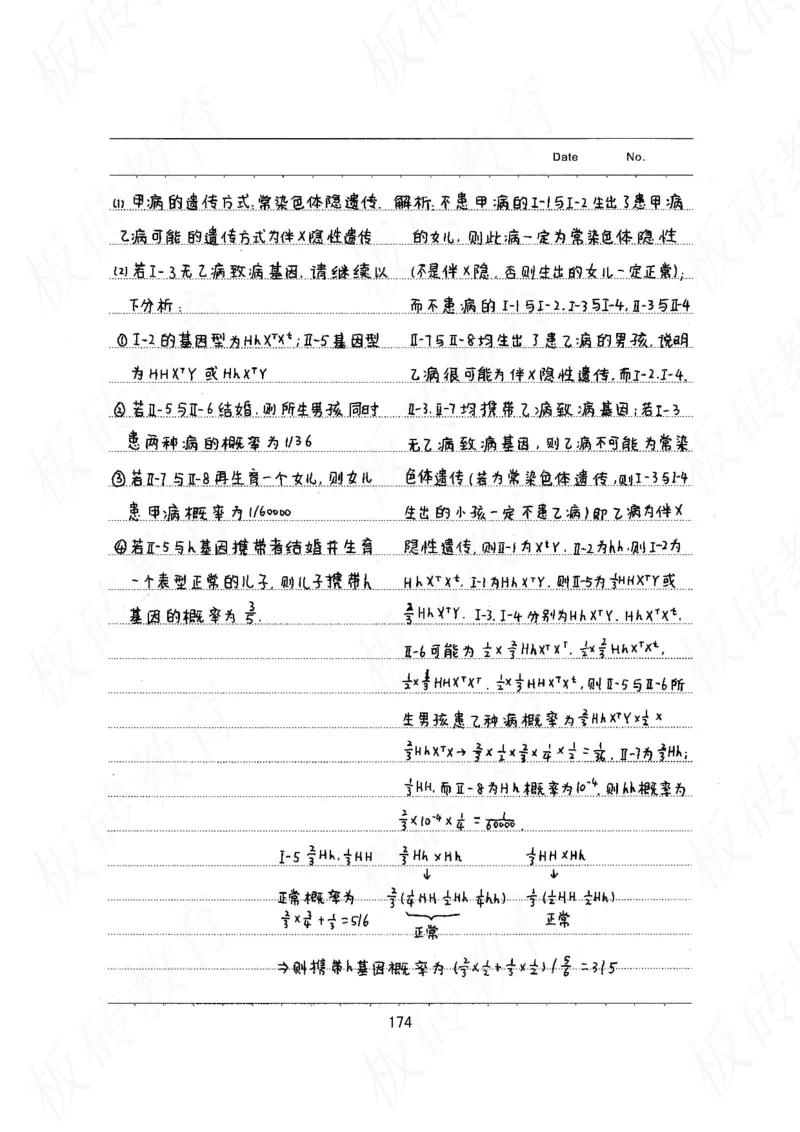 Date No.
(1) 甲病的遗传方式:常染色体隐遗传.
乙病可能的遗传方式为伴X隐性遗传
(2) 若I-3无乙病致病基因.请继续以
下分析:
① I-2的基因型为HhXᵀXᵗ;Ⅱ-5基因型
为HHXᵀY或HhXᵀY
② 若Ⅱ-5与Ⅱ-6结婚.则所生男孩同时
患两种病的概率为1/36
③ 若Ⅱ-7与Ⅱ-8再生育一个女儿,则女儿
患甲病概率为1/60000
④ 若Ⅱ-5与h基因携带者结婚并生育
一个表型正常的儿子.则儿子携带h
基因的概率为3/5.
解析:不患甲病的I-1与I-2生出了患甲病
的女儿.则此病一定为常染色体隐性
(不是伴X隐.否则生出的女儿一定正常);
而不患病的I-1与I-2.I-3与I-4,Ⅱ-3与Ⅱ-4
Ⅱ-7与Ⅱ-8均生出了患乙病的男孩.说明
乙病很可能为伴X隐性遗传.而I-2.I-4.
Ⅱ-3.Ⅱ-7均携带乙病致病基因;若I-3
无乙病致病基因,则乙病不可能为常染
色体遗传(若为常染色体遗传,则I-3与I-4
生出的小孩一定不患乙病)即乙病为伴X
隐性遗传.则Ⅱ-1为XᵗY.Ⅱ-2为hh.则I-2为
HhXᵀXᵗ.I-1为HhXᵀY.则Ⅱ-5为1/3HHXᵀY或
2/3HhXᵀY.I-3.I-4分别为HhXᵀY.HhXᵀXᵗ.
Ⅱ-6可能为1/2×2/3HhXᵀXᵀ.1/2×2/3HhXᵀXᵗ,
1/2×1/3HHXᵀXᵀ.1/2×1/3HHXᵀXᵗ,则Ⅱ-5与Ⅱ-6所
生男孩患乙种病概率为2/3HhXᵀY×1/2×
2/3HhXᵀX→2/3×1/2×2/3×1/4×1/2=1/36.Ⅱ-7为2/3Hh;
1/3HH.而Ⅱ-8为Hh概率为10⁻⁴.则hh概率为
2/3×10⁻⁴×1/4=1/60000.
I-5 2/3Hh.1/3HH 2/3Hh×Hh 1/3HH×Hh
↓ ↓
正常概率为 2/3(1/4HH 1/2Hh 1/4hh) 1/3(1/2HH 1/2Hh)
2/3×3/4+1/3=5/6 正常 正常
⇒则携带h基因概率为(2/3×1/2+1/3×1/2)/5/6=3/5
174